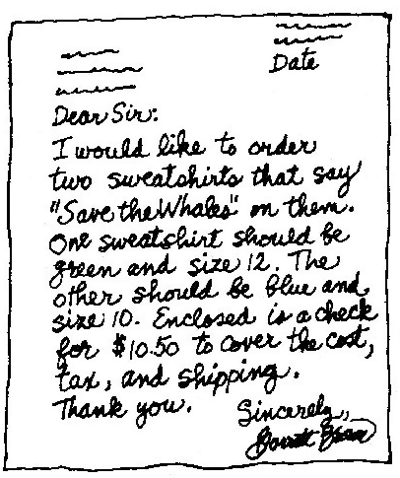 Date
Dear Sir:
I would like to order
two sweatshirts that say
"Save the Whales" on them.
One sweatshirt should be
green and size 12. The
other should be blue and
size 10. Enclosed is a check
for $10.50 to cover the cost,
tax, and shipping.
Thank you.
Sincerely,